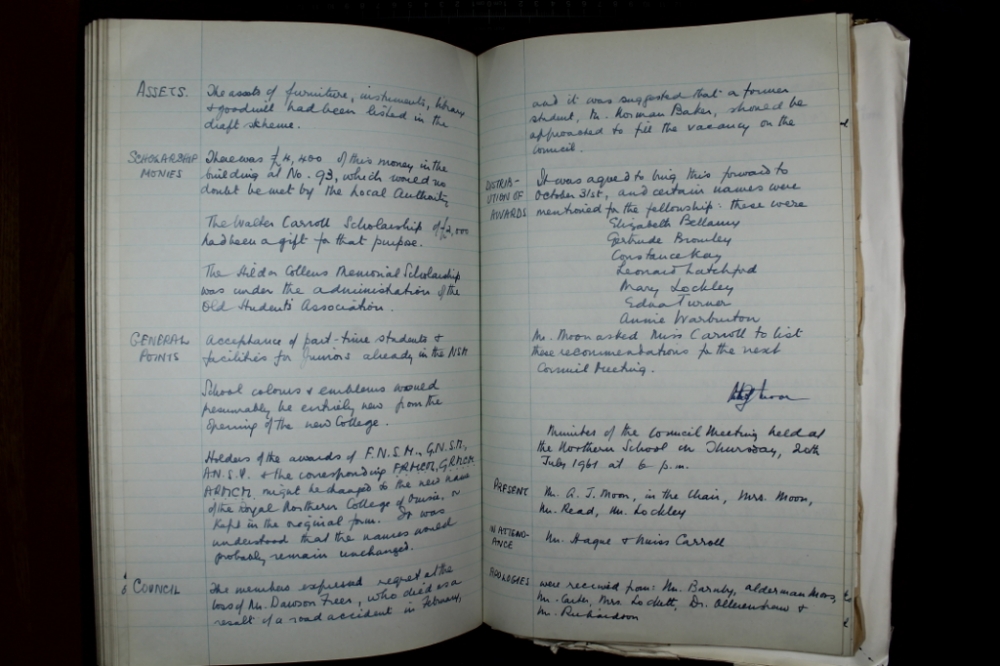 ASSETS. The assets of furniture, instruments, library
& goodwill had been listed in the
draft scheme.
SCHOLARSHIP There was £4,400 of this money in the
MONIES building at No. 93, which would no
doubt be met by the Local Authority
The Walter Carroll Scholarship of £2,000
had been a gift for that purpose.
The Hilda Collens Memorial Scholarship
was under the administration of the
Old Students Association.
GENERAL Acceptance of part-time students &
POINTS facilities for Juniors already in the NSM
School colours & emblems would
presumably be entirely new from the
opening of the new College.
Holders of the awards of F.N.S.M., G.N.S.M.,
A.N.S.M. & the corresponding FRMCM, GRMCM
ARMCM might be changed to the new name
of the Royal Northern College of Music or
kept in the original form. It was
understood that the names would
probably remain unchanged.
COUNCIL The members expressed regret at the
loss of Mr. Dawson Freer, who died as a
result of a road accident in February,
and it was suggested that a former
student, Mr. Norman Baker, should be
approached to fill the vacancy on the
Council.
DISTRIB- It was agreed to bring this forward to
UTION OF October 31st, and certain names were
AWARDS mentioned for the fellowship: these were
Elizabeth Bellamy
Gertrude Bromley
Constance Kay
Leonard Latchford
Mary Lockley
Edna Turner
Annie Warburton
Mr. Moon asked Miss Carroll to list
these recommendations for the next
Council Meeting.
Moon
Minutes of the Council Meeting held at
the Northern School on Thursday, 20th
July 1961 at 6 p.m.
PRESENT Mr. A. J. Moon, in the Chair, Mrs. Moon,
Mr. Read, Mr. Lockley
IN ATTEND- Mr. Hague & Miss Carroll
ANCE
APOLOGIES were received from: Mr. Barnby, alderman
Mr. Carter, Mrs. Lockett, Dr. Ollerenshaw &
Mr. Richardson